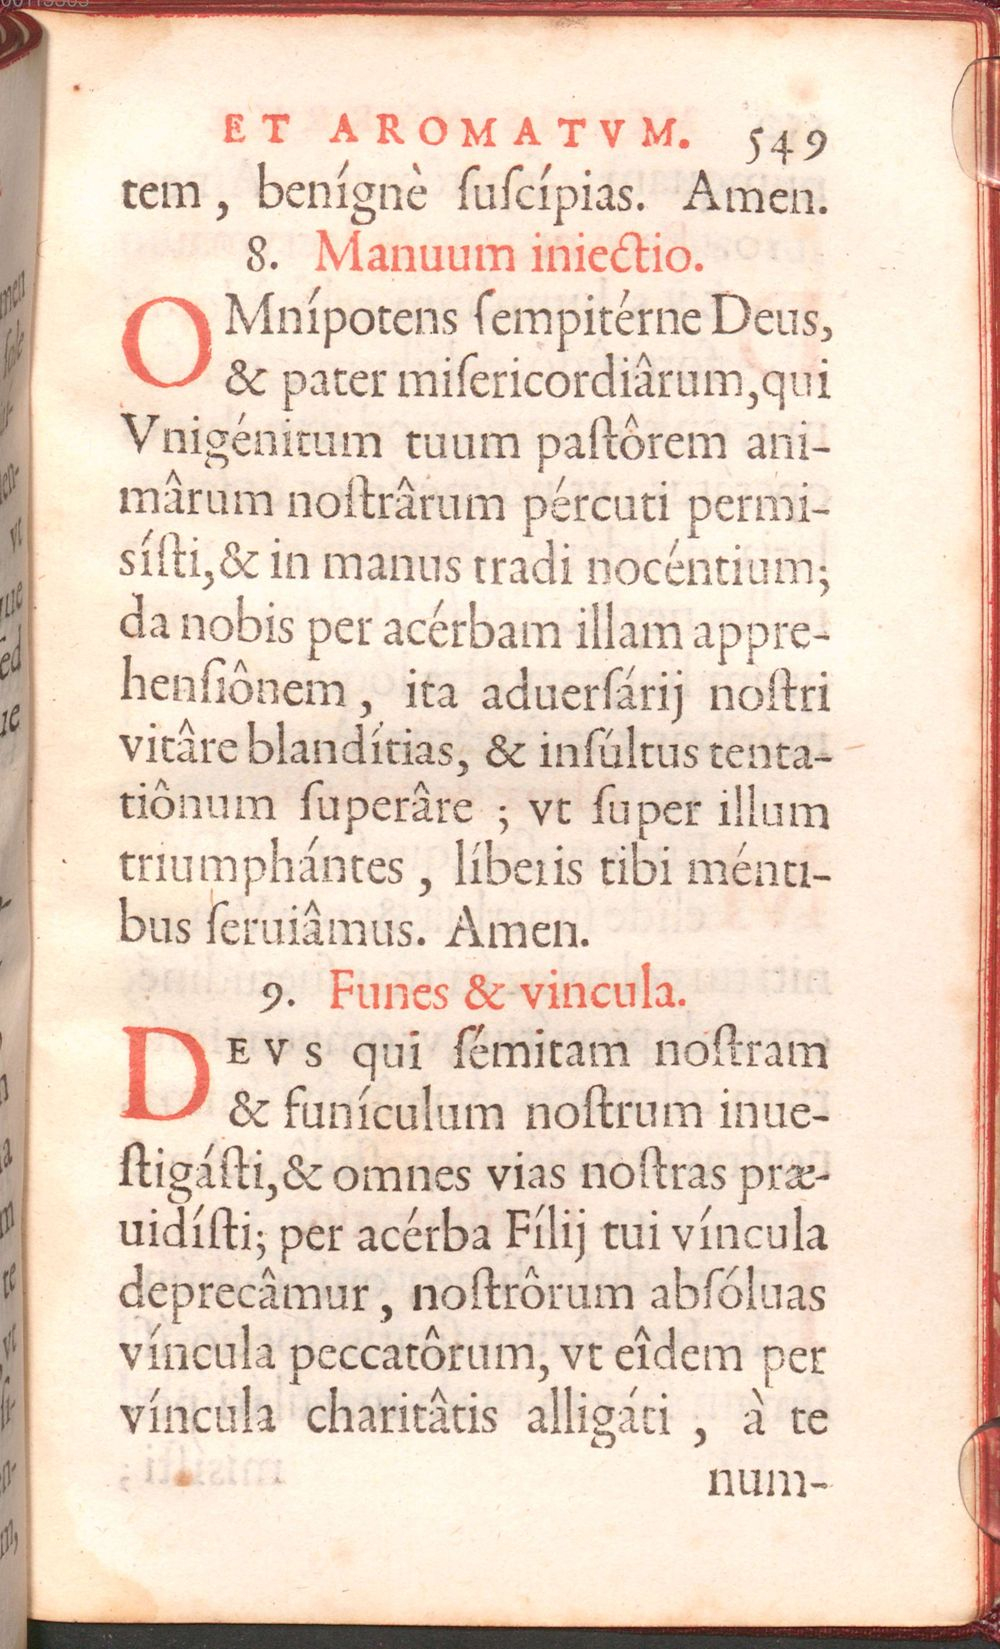 ET AROMATVM. 549
tem, benígnè ſuſcípias. Amen.
8. Manuum iniectio.
OMnípotens ſempitérne Deus,
& pater miſericordiârum, qui
Vnigénitum tuum paſtôrem ani-
mârum noſtrârum pércuti permi-
síſti, & in manus tradi nocéntium;
da nobis per acérbam illam appre-
henſiônem, ita aduerſárij noſtri
vitâre blandítias, & inſúltus tenta-
tiônum ſuperâre; vt ſuper illum
triumphántes, líberis tibi ménti-
bus ſeruiâmus. Amen.
9. Funes & vincula.
DEVS qui ſémitam noſtram
& funículum noſtrum inue-
ſtigáſti, & omnes vias noſtras præ-
uidíſti; per acérba Fílij tui víncula
deprecâmur, noſtrôrum abſóluas
víncula peccatôrum, vt eîdem per
víncula charitâtis alligáti, à te
num-